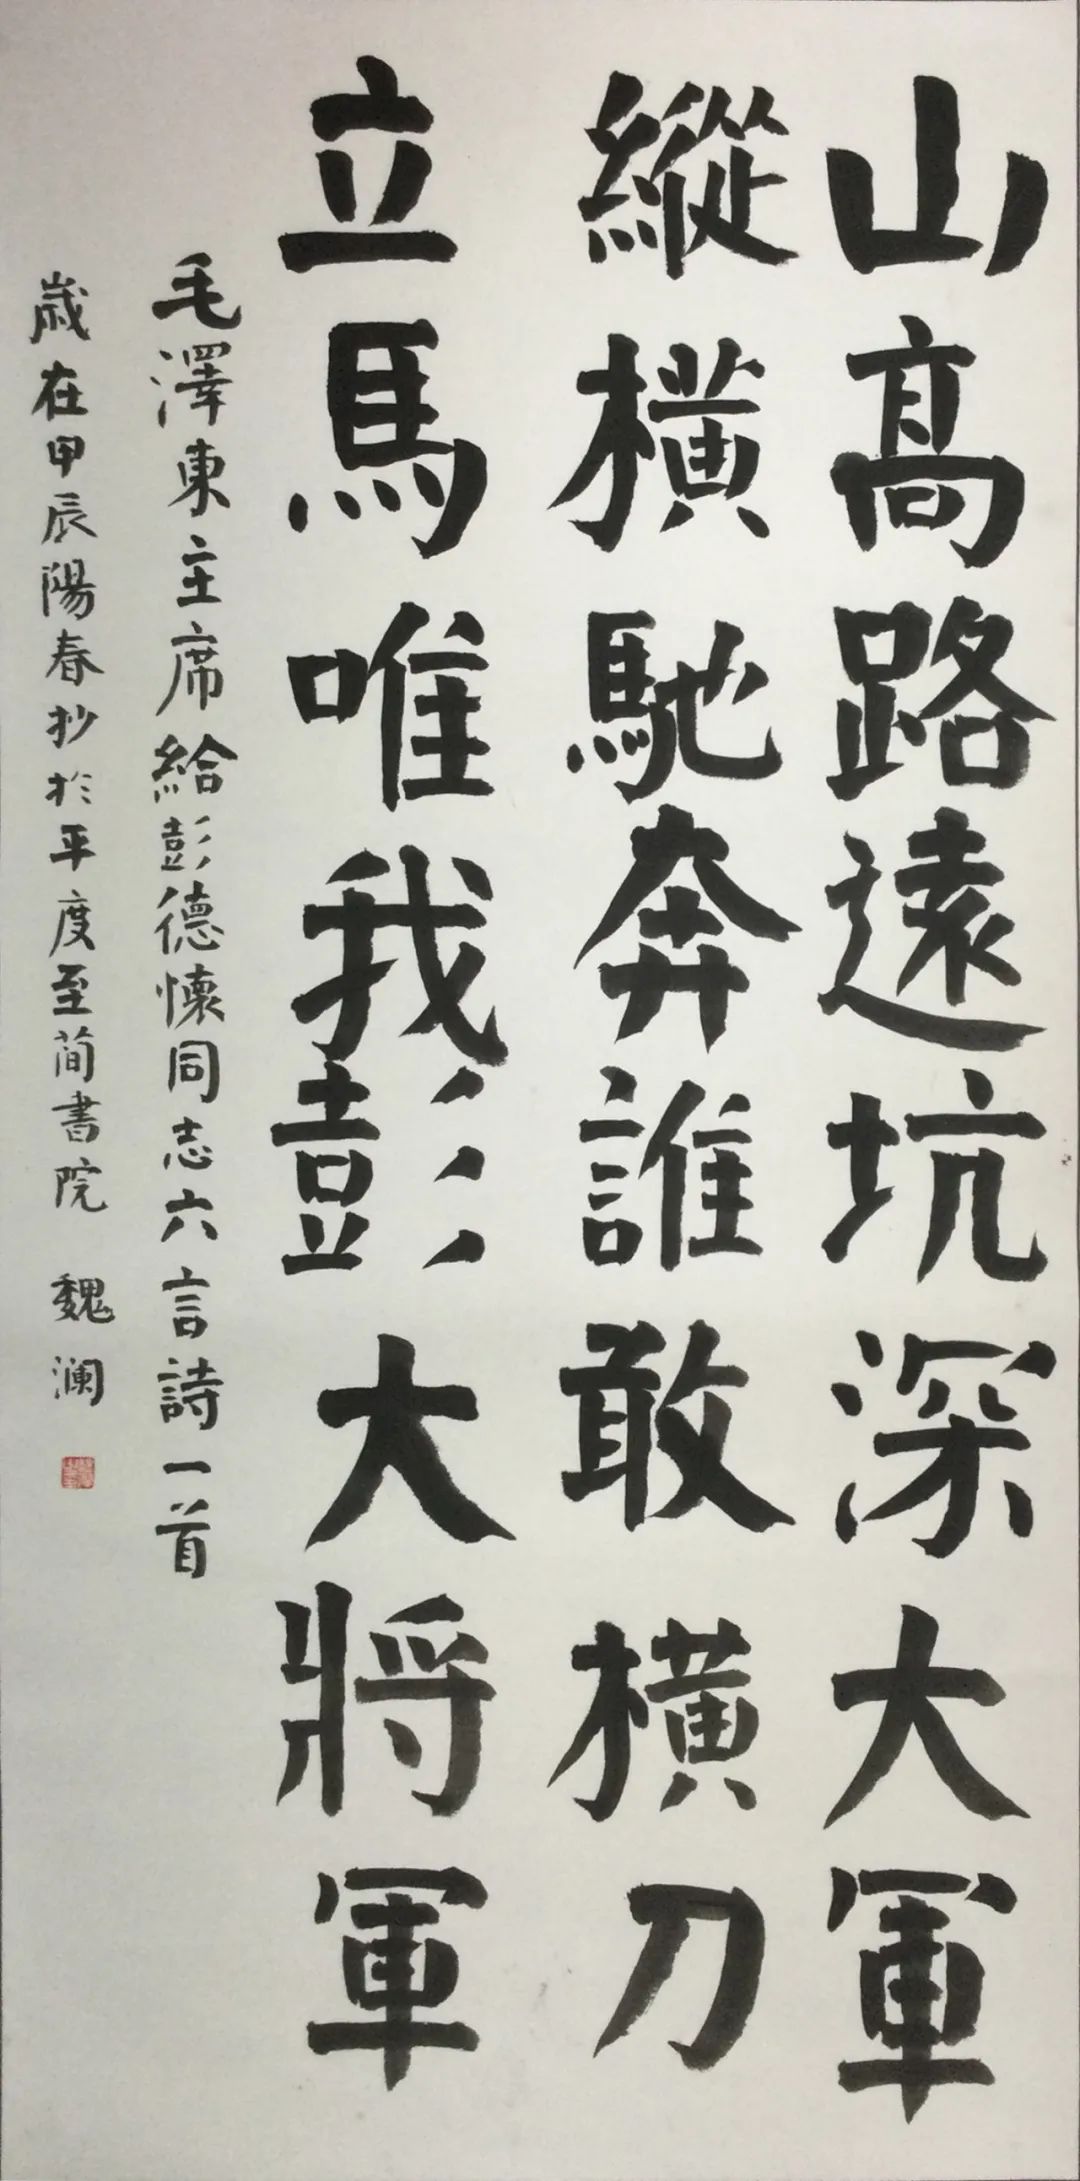 山高路遠坑深大軍
縱橫馳奔誰敢橫刀
立馬唯我彭大將軍
毛澤東主席給彭德懷同志六言詩一首
歲在甲辰陽春抄於平度至简書院 魏澜